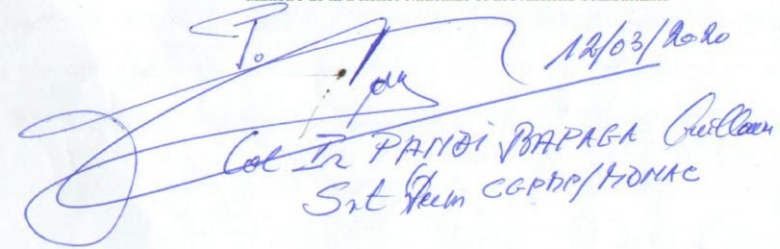 P.o
12/03/2020
Col Ir PANDI BAPAGA Guillaum
Snt Perm CGPMP/MDNAC